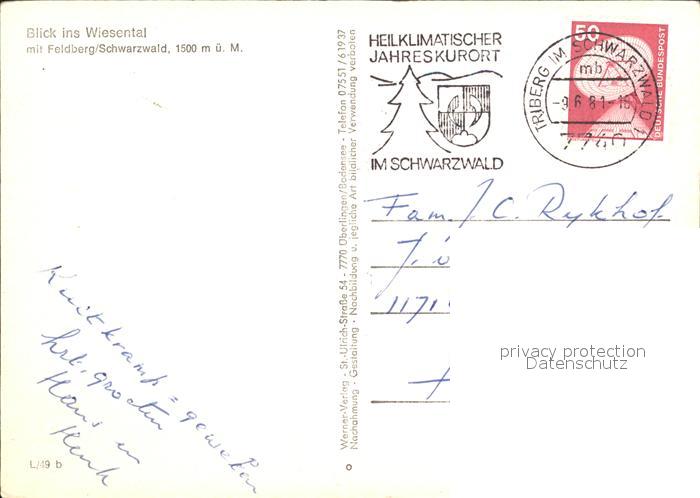 Blick ins Wiesental
mit Feldberg/Schwarzwald, 1500 m ü. M.
HEILKLIMATISCHER
JAHRESKURORT
IM SCHWARZWALD
TRIBERG IM SCHWARZWALD 1
mb
-9.6.81-16
7740
50
DEUTSCHE BUNDESPOST
Werner-Verlag - St.-Ulrich-Straße 54 - 7770 Überlingen/Bodensee - Telefon 07551/61937
Nachahmung - Gestaltung - Nachbildung u. jegliche Art bildlicher Verwendung verboten
Fam. J. C. Rykhof
1171
privacy protection
Datenschutz
gewekon
hrt. groeten
Hans en
Henk
L/49 b